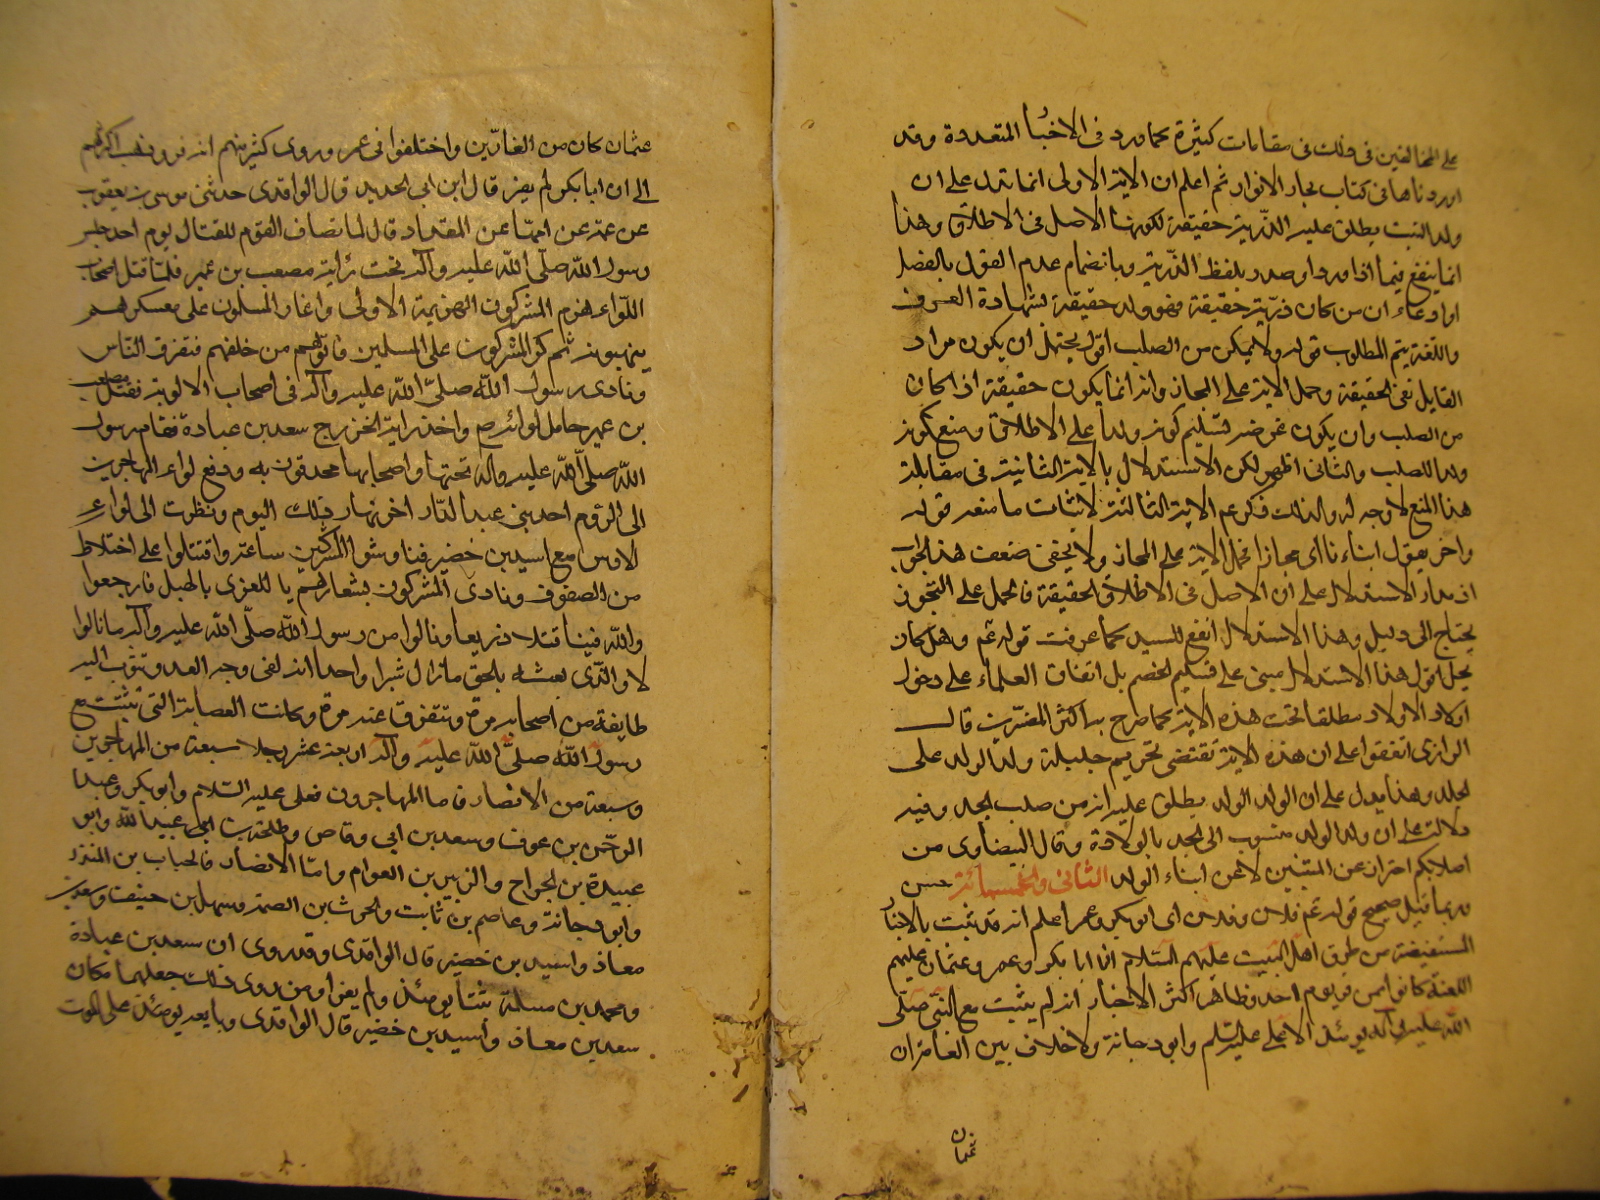 على المخالفين فى ذلك فى مقامات كثيرة كما ورد فى الاخبا المتعددة وقد
اوردناها فى كتاب بحار الانوار ثم اعلم ان الاية الاولى انما تدل على ان
ولد البنت يطلق عليه الذرية حقيقة لكونها الاصل فى الاطلاق وهذا
انما ينفع فيما اذا ورد او صدر بلفظ الذرية وبانضمام عدم القول بالفصل
او ادعاء ان من كان ذرية حقيقة فهو ولد حقيقة بشهادة العرف
واللغة يتم المطلوب قوله ولا يمكن من الصلب اقول يحتمل ان يكون مراد
القايل نفى الحقيقة وحمل الاية على المجاز وانه انما يكون حقيقة اذا كان
من الصلب وان يكون غرضه تسليم كونه ولدا على الاطلاق ومنع كونه
ولدا للصلب والثانى اظهر لكن الاستدلال بالاية الثانية فى مقابلة
هذا المنع لا وجه له ولذلك ذكر عم الاية الثالثة لاثبات ما منعه قوله
واخر يقول ابناءنا اى مجازا فحمل الاية على المجاز ولا يخفى ضعف هذا الجواب
اذ مدار الاستدلال على ان الاصل فى الاطلاق الحقيقة فالحمل على التجوز
يحتاج الى دليل وهذا الاستدلال انفع للسيد كما عرفت قوله عم وهل كان
يحل اقول هذا الاستدلال مبنى على تسليم الخصم بل اتفاق العلماء على دخول
اولاد الاولاد مطلقا تحت هذه الاية كما صرح به اكثر المفسرين قال
الرازى اتفقوا على ان هذه الاية تقتضى تحريم حليلة ولد الولد على
الجد وهذا يدل على ان الولد الولد يطلق عليه انه من صلب الجد وفيه
دلالة على ان ولد الولد منسوب الى الجد بالولادة وقال البيضاوى من
اصلابكم احتراز عن المتبنين لا عن ابناء الولد الثانى والخمسمائة حسن
وربما قيل صحيح قوله عم فلان وفلان اى ابو بكر وعمر اعلم انه قد ثبت بالاخبا
المستفيضة من طرق اهل البيت عليهم السلام ان ابا بكر وعمر وعثمان عليهم
اللعنة كانوا ممن فر يوم احد وظاهر اكثر الاخبار انه لم يثبت مع النبى صلى
الله عليه وآله يومئذ الا على عليه السلم وابو دجانة ولا خلاف بين العامة ان
عثمان
عثمان كان من الفارين واختلفوا فى عمر وروى كثير منهم انه فر وذهب اكثرهم
الى ان ابا بكر لم يفر قال ابن ابى الحديد قال الواقدى حدثنى موسى بن يعقوب
عن عمته عن امها عن المقداد قال لما تصاف القوم للقتال يوم احد جلس
رسول الله صلى الله عليه وآله تحت راية مصعب بن عمير فلما قتل اصحاب
اللواء هزم المشركون الهزيمة الاولى واغار المسلمون على معسكرهم
ينهبونه ثم كر المشركون على المسلمين فاتوهم من خلفهم فتفرق الناس
ونادى رسول الله صلى الله عليه وآله فى اصحاب الالوية فقتل مصعب
بن عمير حامل لوائه ص واخذ راية الخزرج سعد بن عبادة فقام رسول
الله صلى الله عليه وآله تحتها واصحابها محدقون به ودفع لواء المهاجرين
الى الروم احد بنى عبد الدار اخر نهار ذلك اليوم ونظرت الى لواء
الاوس مع اسيد بن خضير فناوشوا المشركين ساعة واقتتلوا على اختلاط
من الصفوف ونادى المشركون بشعارهم يا للعزى يا لهبل فارجعوا
والله فينا قتلا ذريعا ونالوا من رسول الله صلى الله عليه وآله ما نالوا
لا والذى بعثه بالحق ما زال شبرا واحدا انه لفى وجه العدو وتثوب اليه
طايفة من اصحابه مرة وتتفرق عنه مرة وكانت العصابة التى ثبتت مع
رسول الله صلى الله عليه وآله اربعة عشر رجلا سبعة من المهاجرين
وسبعة من الانصار فاما المهاجرون فعلى عليه السلام وابو بكر وعبد
الرحمن بن عوف وسعد بن ابى وقاص وطلحة بن عبيد الله وابو
عبيدة بن الجراح والزبير بن العوام واما الانصار فالحباب بن المنذر
وابو دجانة وعاصم بن ثابت والحرث بن الصمة وسهل بن حنيف وسعد بن
معاذ واسيد بن خضير قال الواقدى وقد روى ان سعد بن عبادة
ومحمد بن مسلمة ثبتا يومئذ ولم يفرا ومن روى ذلك جعلهما مكان
سعد بن معاذ واسيد بن خضير قال الواقدى وبايعه يومئذ على الموت